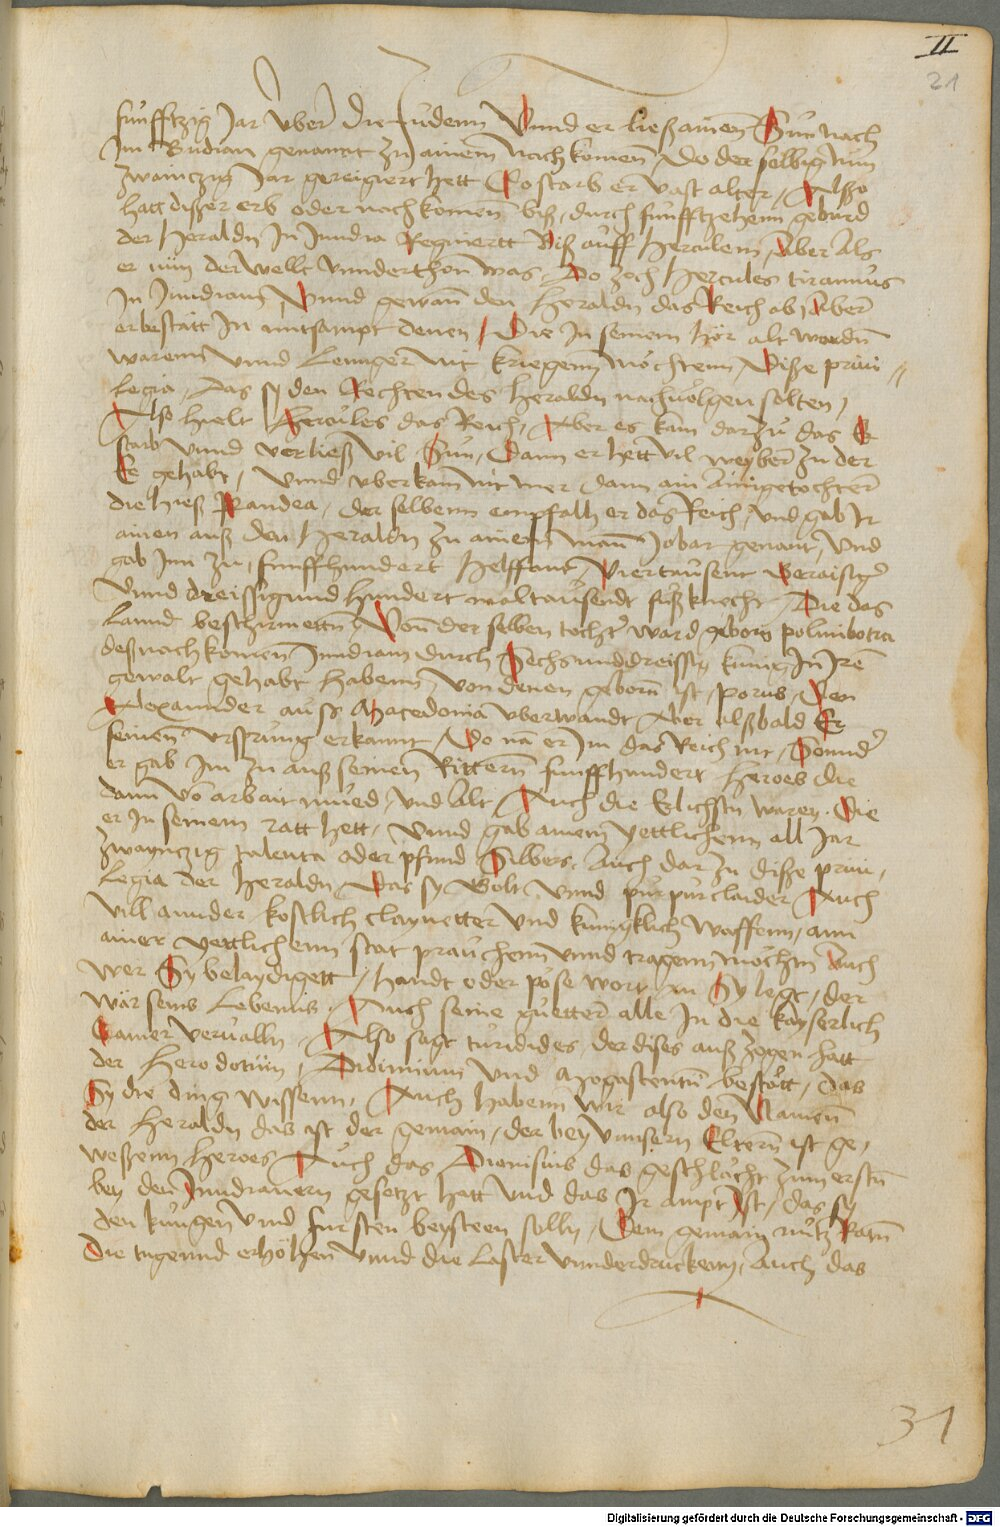 II
21
fünfftzig Jar vber die Judenn Vnnd er ließ ainen Sün nach
Im Budian genannt zu ainem nachkomen Do der selbig nün
zwaintzig Jar geregiert hett Do starb er vast alter, Allso
hatt disser erb oder nachkomen biß, durch fünfftzehenn gebürd
der Heraldn In Inndia Regniertt Biß auff Herculem, Aber Als
er nün der wellt vnnderthon was, Do zoch Hercules tirannus
In Inndiam Vnnd gewan den Heraldn das Reich ab, Aber
er bestätt In amtsampt denen, Die In seinem hör alt wordn
warenn Vnnd Lennger nit kriegenn möchtenn, Disse priui //
legia, das sy den Rechten des Heraldn nachuolgen solten,
Also hielt Hercules das Reich, Aber es kam darzu das Er
starb Vnnd verließ vil Sün, Dann er hett vil weyber zu der
Ee gehabt, Vnnd vberkam nit mer dann ain Ainige tochter
die hieß Pandea, der selbenn empfalh er das Reich, vnd gab Ir
ainen auß den Heraldn zu ainem man Jobar genant, Vnd
gab Im zu, fünffhundert Helffant, Viertausent Geraisiger
Vnnd dreissig vnnd hundert maltausendt fußknecht, Die das
Lannd beschirmettn, Von der selben tochter ward geborn polimbotra
des nachkomen Inndiam durch Sechs vnnd dreissig künig In Irem
gewalt gehabt habenn, von denen geborn ist, porus, Den
Alexannder auss Macedonia vberwandt, Aber alßbald Er
seinen vrsprüng erkannt, Do nam er Im das Reich nit, Sonnder
er gab Im zu auß seinen Rittern fünffhundert Heroes die
dann von arbait müed, vnd Alt, Auch die Erlichstn waren. Die
er In seinem ratt hett, Vnnd gab ainem yettlichenn all Jar
zwayntzig talenta oder pfünd Silbers, Auch dar zu disse priui,
legia der Heraldn, Das sy Golt Vnnd pürpürclaider, Auch
vill annder kostlich claynetter Vnd künigklich waffenn, ann
ainer yettlichenn stat prauchenn vnnd tragenn möchtn Auch
wer Sy belaydigett, Handt oder pöse wort an Sy legt, der
wär seins Lebenns, Auch seine guetter alle In die kayserlich
Camer veruallen, Also sagt turidides der dises auß zogen hatt
der Herodotum, Didimum Vnd Mogastenem bestött, das
Sy die ding wissenn, Auch habenn wir also den Namen
der Heraldn das ist der gemain, der bey vnnsern Elltern ist ge,
wesenn Heroes Auch das Dionisius das geschlächt zum erstn
bey den Inndianern gesetzt hatt Vnd das Ir ampt Ist, das sy
den küngen vnd fürsten beysteen solln, Dem gemain nütz Ratn
die tugennd erhöhen Vnnd die Laster vnnderdruckenn, Auch das
31
Digitalisierung gefördert durch die Deutsche Forschungsgemeinschaft - DFG